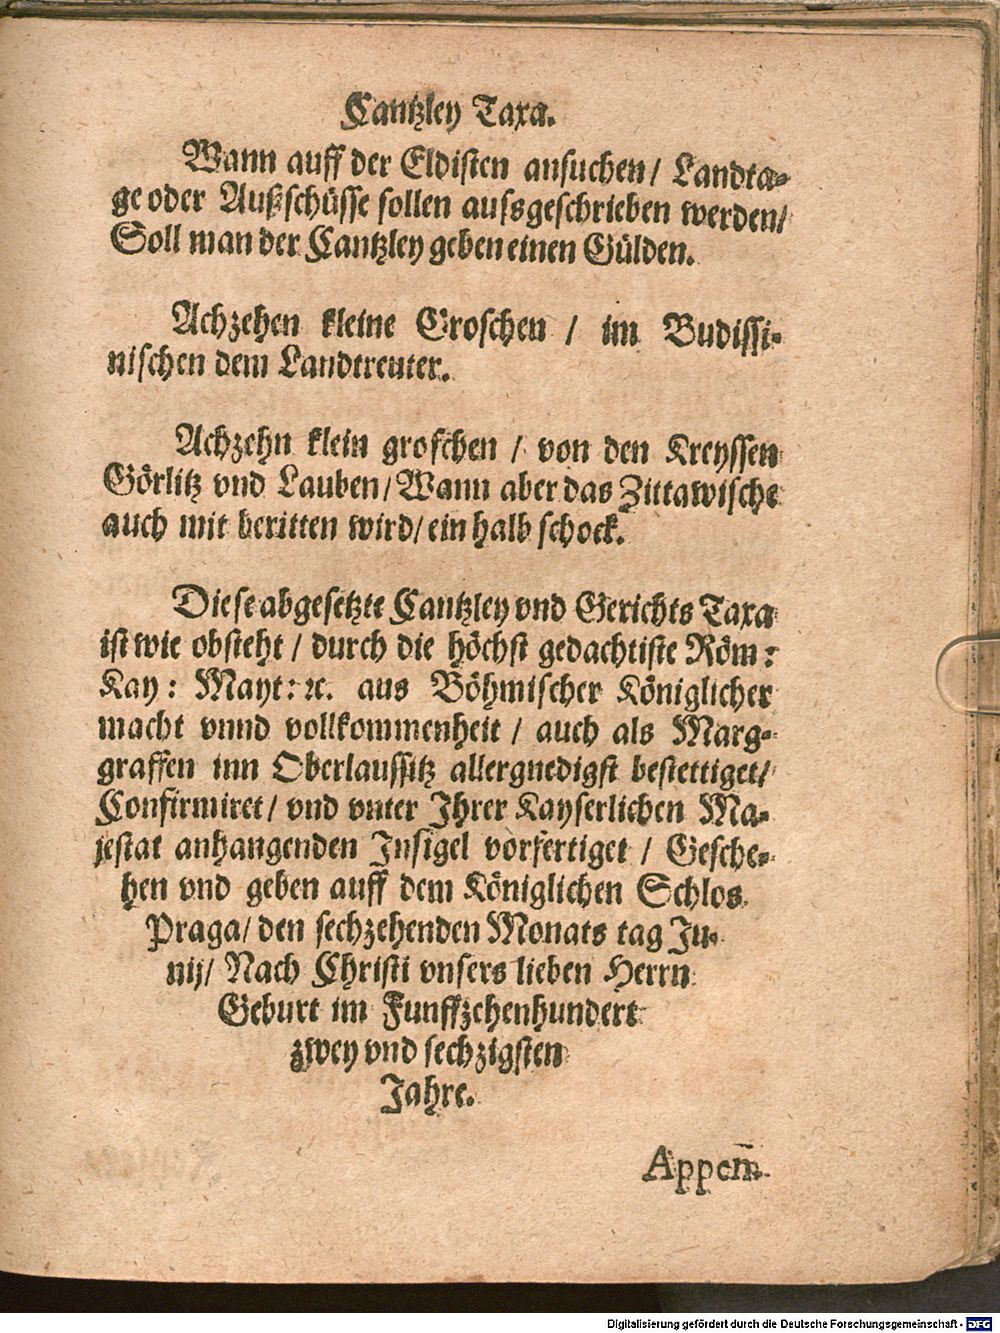 Cantzley Taxa.
Wann auff der Eldisten ansuchen/ Landta-
ge oder Außschüsse sollen aussgeschrieben werden/
Soll man der Cantzley geben einen Gülden.
Achzehen kleine Groschen / im Budissi-
nischen dem Landtreuter.
Achzehn klein groschen / von den Kreyssen
Görlitz vnd Lauben/ Wann aber das Zittawische
auch mit beritten wird/ ein halb schock.
Diese abgesetzte Cantzley vnd Gerichts Taxa
ist wie obsteht / durch die höchst gedachtiste Röm:
Kay: Mayt: ꝛc. aus Böhmischer Königlicher
macht vnnd vollkommenheit / auch als Marg-
graffen inn Oberlaussitz allergnedigst bestettiget/
Confirmiret/ vnd vnter Ihrer Kayserlichen Ma-
jestat anhangenden Insigel vorfertiget / Gesche-
hen vnd geben auff dem Königlichen Schlos
Praga/ den sechzehenden Monats tag Ju-
nij/ Nach Christi vnsers lieben Herrn
Geburt im Funffzehenhundert
zwey vnd sechzigsten
Jahre.
Appen̄-
Digitalisierung gefördert durch die Deutsche Forschungsgemeinschaft - DFG